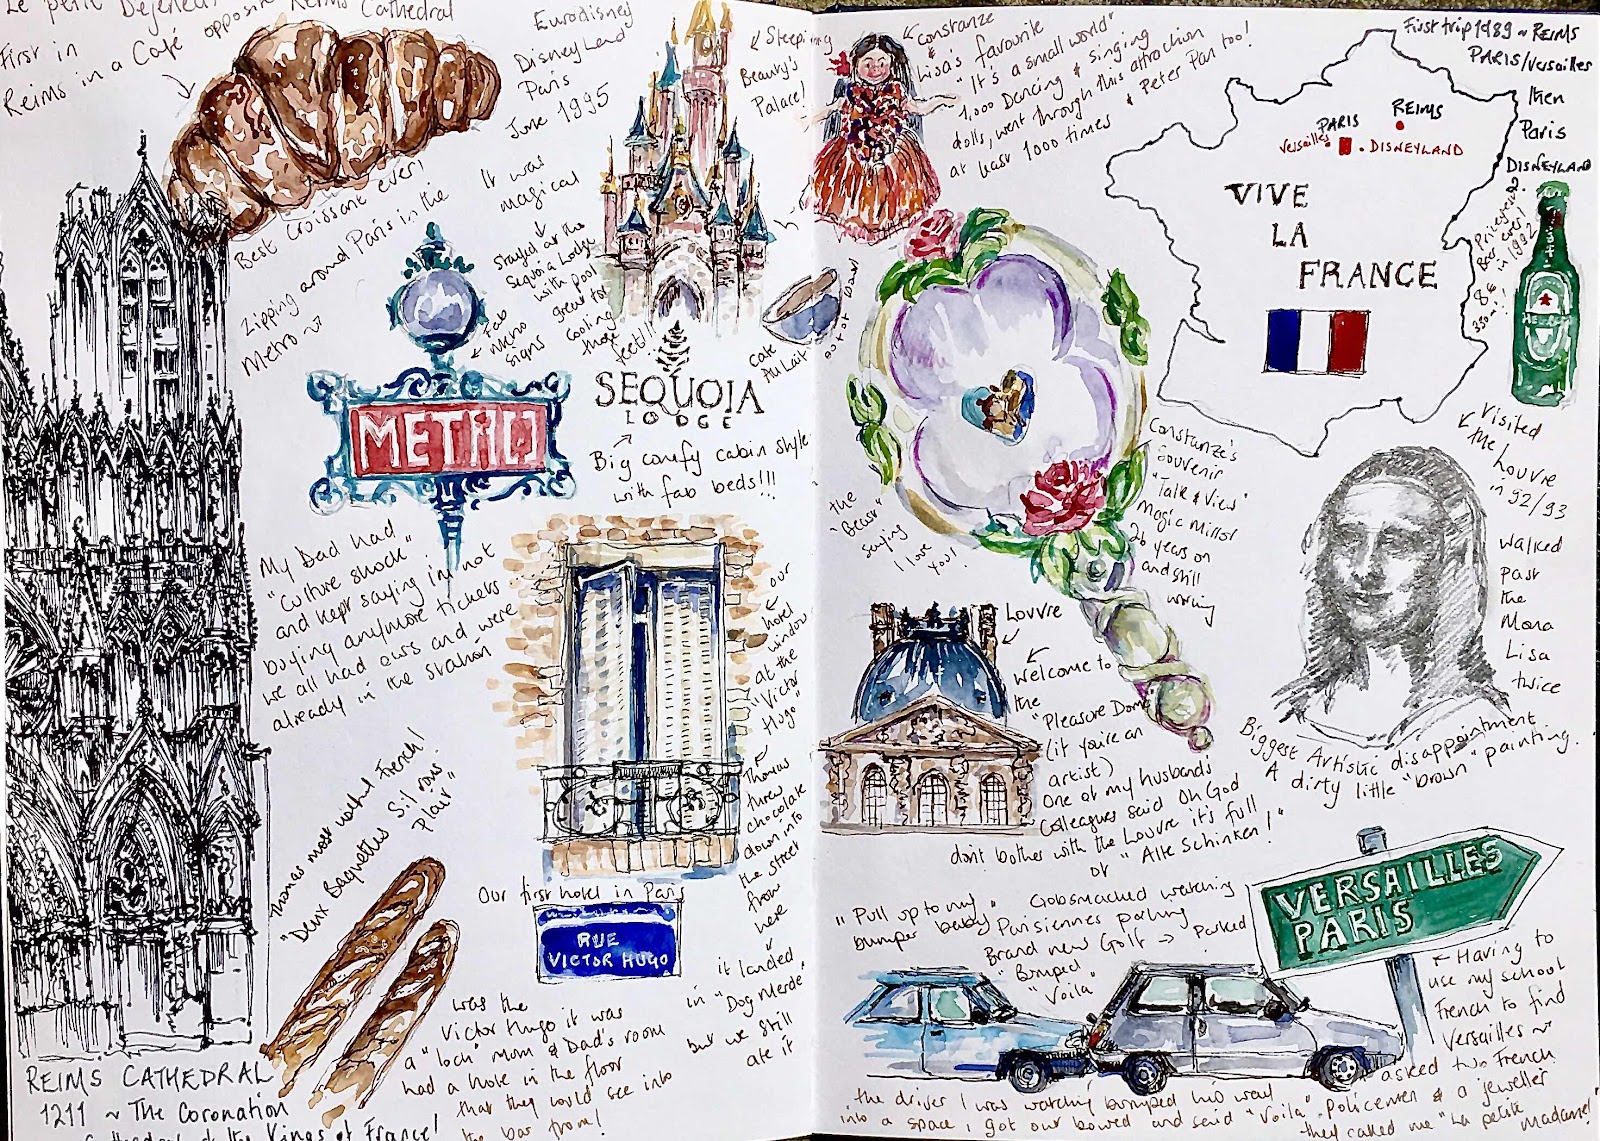 Le petit Dejeneur opposite Reims Cathedral
First in
Reims in a Café
Best Croissant ever!
Eurodisney
Disneyland
Paris
June 1995
It was
magical
Stayed at the
Sequoia Lodge
with pool
great for
cooling
those
feet!!!
Zipping around Paris in the
Metro
Fab
Metro
signs
METRO
Sleeping
Beauty's
Palace!
SEQUOIA
LODGE
Cafe
Au Lait
Big comfy cabin style
with fab beds!!!
My Dad had
"Culture shock"
and kept saying I'm not
buying anymore tickets
we all had ours and were
already in the station
our
hotel
window
at the
"Victor
Hugo"
Thomas
threw
chocolate
down into
the street
from
here
it landed
in "Dog Merde"
but we still
ate it
Thomas most useful French!
"Deux Baguettes S'il vous
Plait"
Our first hotel in Paris
RUE
VICTOR HUGO
was the
Victor Hugo it was
a "loch" Mom & Dad's room
had a hole in the floor
that they could see into
the bar from!
REIMS CATHEDRAL
1211 ~ The Coronation
Kings of France!
Constanze
&
Lisa's favourite
"It's a small world"
1,000 Dancing & Singing
dolls, went through this attraction
at least 1000 times & Peter Pan too!
First trip 1989 ~ REIMS
PARIS/Versailles
then
Paris
DISNEYLAND
REIMS
PARIS
Versailles
DISNEYLAND
VIVE
LA
FRANCE
Priceyest
Beer ever!
in 1992
8€
350ml!!
Visited
the Louvre
in 92/93
walked
past
the
Mona
Lisa
twice
Biggest Artistic disappointment
A dirty little "brown" painting.
Constanze's
Souvenir
"Talk & View"
Magic Mirror
26 years on
and still
working
the
"Beast"
saying
I love
You!
Louvre
Welcome to
the
"Pleasure Dome
(if you're an
artist)
One of my husbands
Colleagues said Oh God
don't bother with the Louvre it's full
of "Alte Schinken!"
"Pull up to my
bumper baby"
Gobsmacked watching
Parisiennes parking
Brand new Golf → Parked
"Bumped"
"Voila"
VERSAILLES
PARIS
Having to
use my school
French to find
Versailles ~
asked two French
Policemen & a jeweller
they called me "La petite
Madame!"
the driver I was watching bumped his way
into a space, I got out bowed and said "Voila".